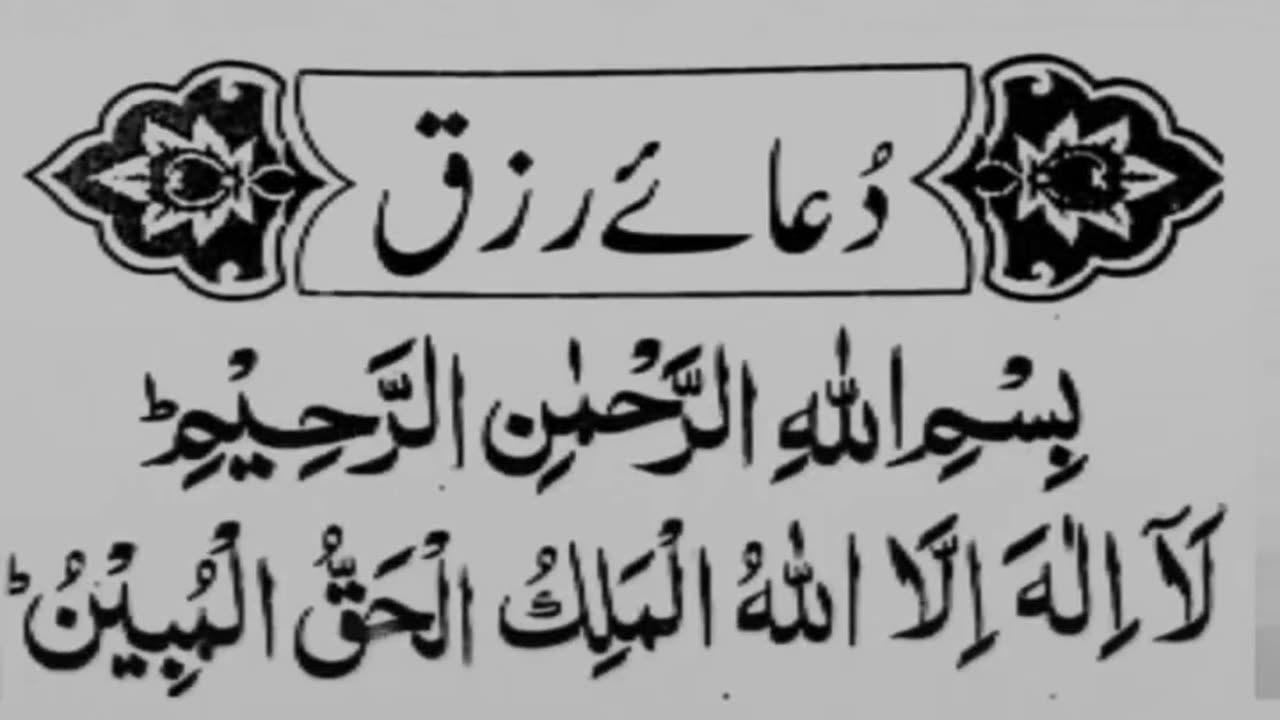 دُعائے رزق
بِسْمِ اللّٰهِ الرَّحْمٰنِ الرَّحِيْمِ ؕ
لَآ اِلٰهَ اِلَّا اللّٰهُ الْمَلِكُ الْحَقُّ الْمُبِيْنُ ؕ